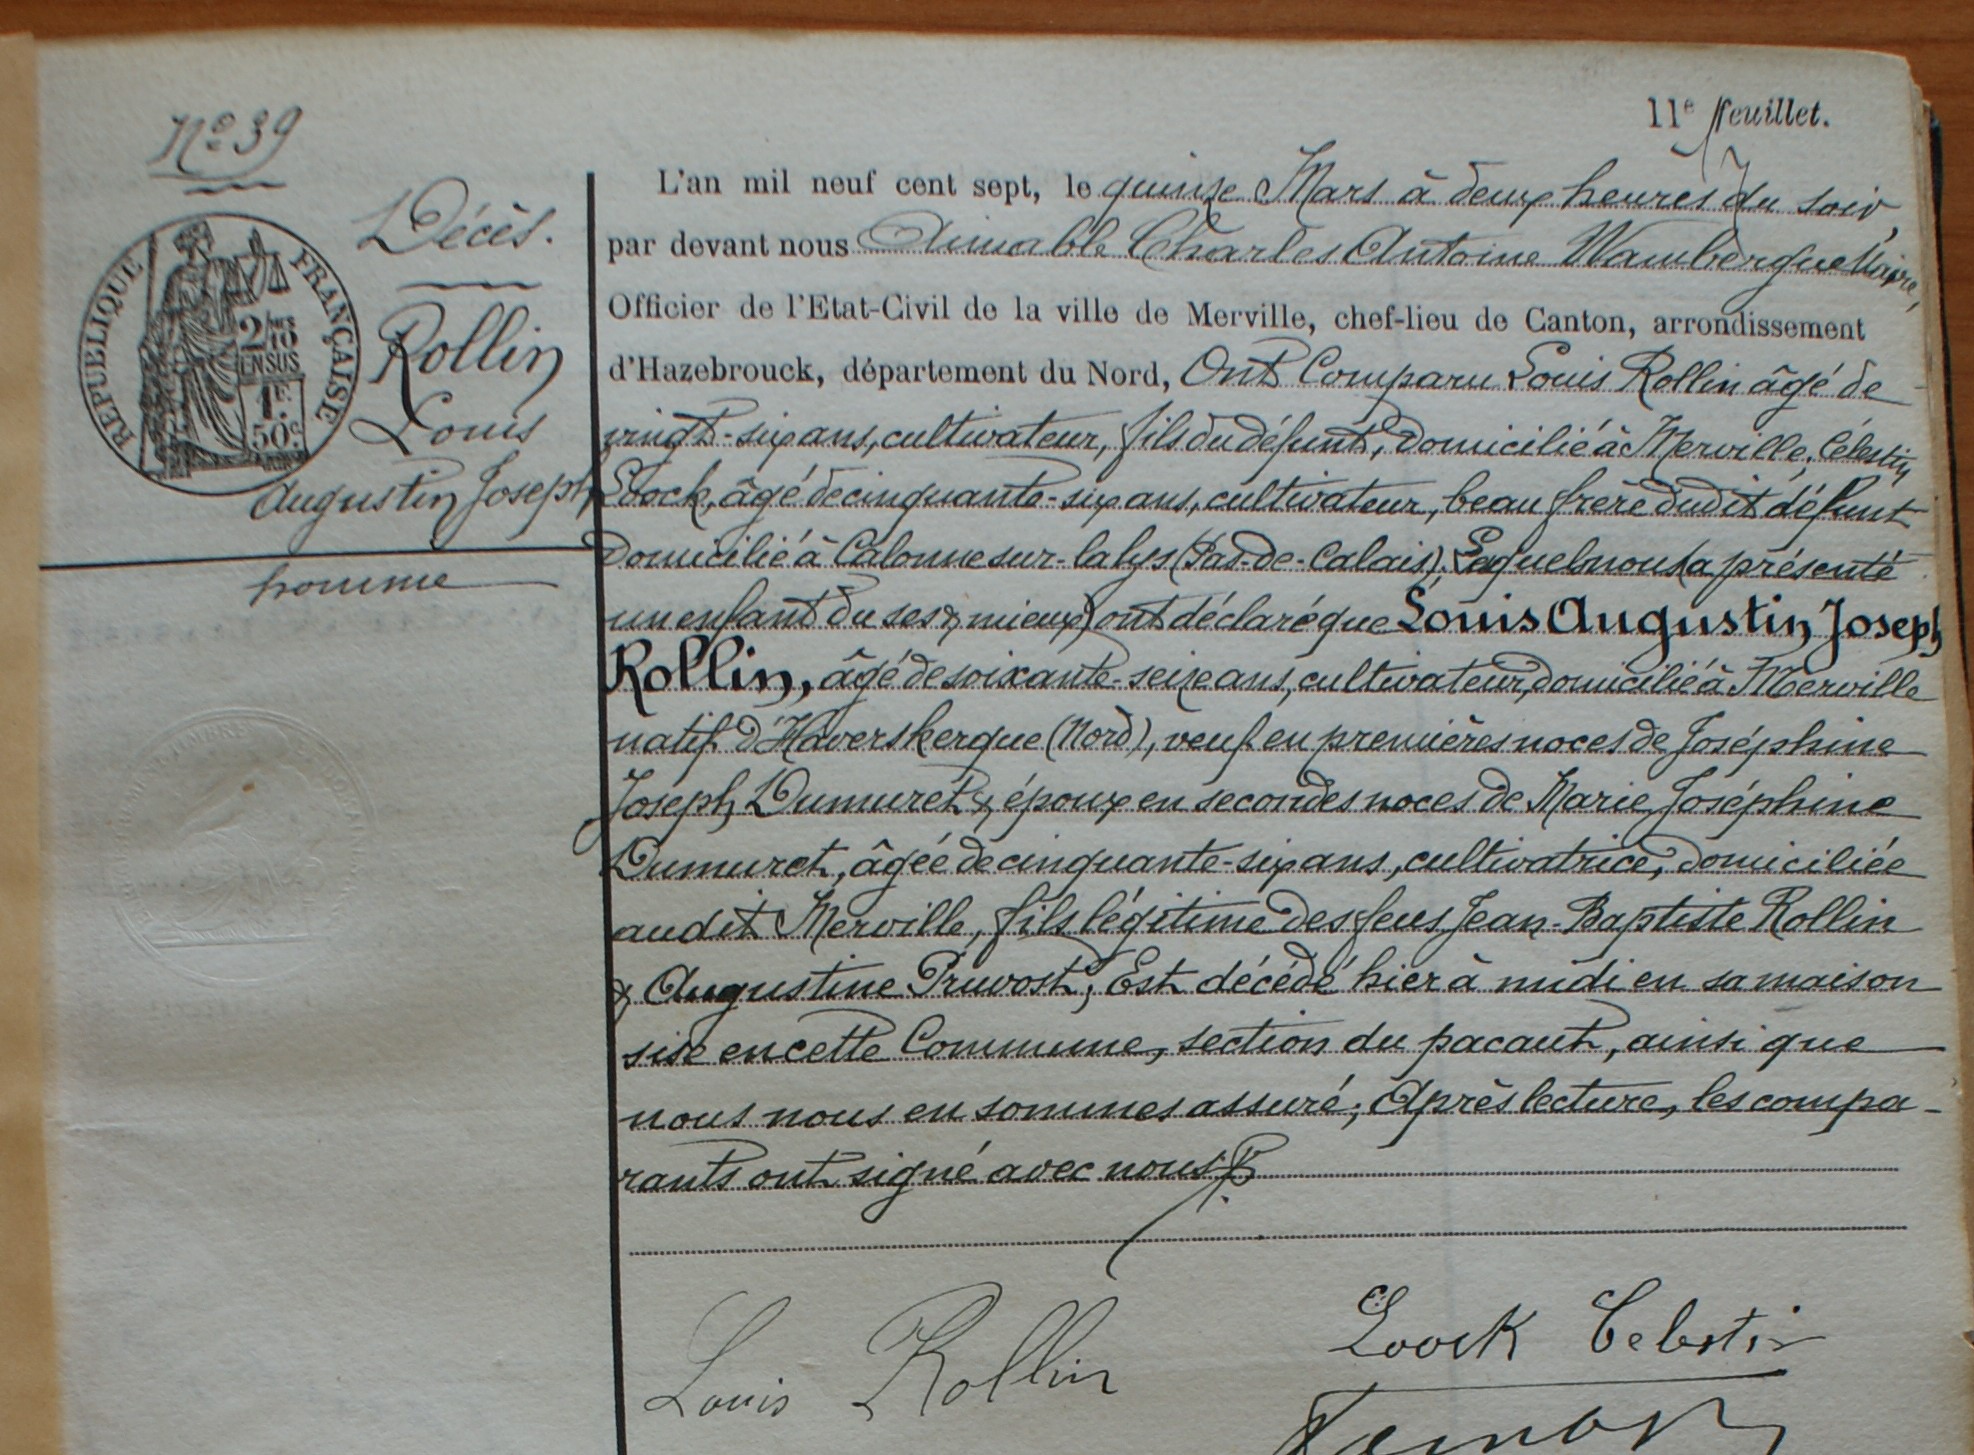 11e feuillet.
No 39
Décès.
Rollin
Louis
Augustin Joseph
homme
REPUBLIQUE FRANÇAISE
2/10 MES
EN SUS
1F.
50c.
L'an mil neuf cent sept, le quinze Mars à deux heures du soir,
par devant nous Aimable Charles Antoine Wambergue Maire,
Officier de l'Etat-Civil de la ville de Merville, chef-lieu de Canton, arrondissement
d'Hazebrouck, département du Nord, Ont Comparu Louis Rollin âgé de
vingt-six ans, cultivateur, fils du défunt, domicilié à Merville, Célestin
Loock, âgé de cinquante-six ans, cultivateur, beau frère dudit défunt
domicilié à Calonne sur-la lys (Pas-de-Calais); Lequel nous (a présenté
un enfant du sexe, mieux) ont déclaré que Louis Augustin Joseph
Rollin, âgé de soixante-seize ans, cultivateur, domicilié à Merville
natif d'Haverskerque (Nord), veuf en premières noces de Joséphine
Joseph Dumuret & époux en secondes noces de Marie Joséphine
Dumuret, âgée de cinquante-six ans, cultivatrice, domiciliée
audit Merville, fils légitime des feus Jean-Baptiste Rollin
& Augustine Pruvost, Est décédé hier à midi en sa maison
sise en cette Commune, section du pacaut, ainsi que
nous nous en sommes assuré; Après lecture, les compa-
rants ont signé avec nous.
Louis Rollin
Loock Celestin